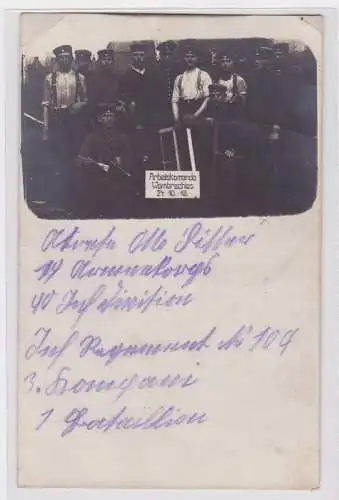 Arbeitskomando
Wambrechies
24. 10. 16.
Adresse Otto Fissler
19 Armeekorps
40 Inf Division
Inf Regement No 104
3. Kompani
1 Bataillion